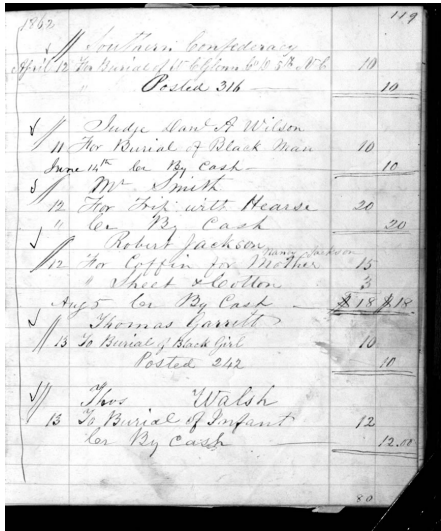 119
1862
Southern Confederacy
April 12 For Burial of W C Glenn Co D 5th N C 10
" Posted 316 10
Judge Danl A Wilson
11 For Burial of Black Man 10
June 14th Cr By Cash 10
Mr Smith
12 For Trip with Hearse 20
" Cr By Cash 20
Robert Jackson
Nancy Jackson
12 For Coffin for Mother 15
" Sheet & Cotton 3
Aug 5 Cr By Cash $18 $18
Thomas Garrett
13 To Burial of Black Girl 10
Posted 242 10
Thos Walsh
13 To Burial of Infant 12
Cr By Cash 12.00
80